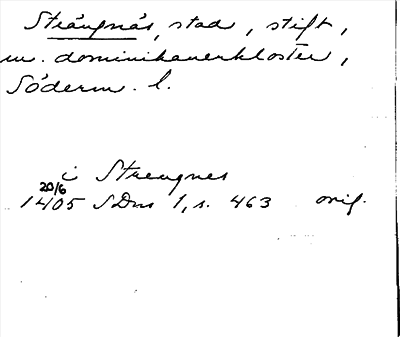 Strängnäs, stad, stift,
m. dominikanerkloster,
Söderm. l.
i Strengnes
20/6
1405 SDns 1, s. 463 orig.